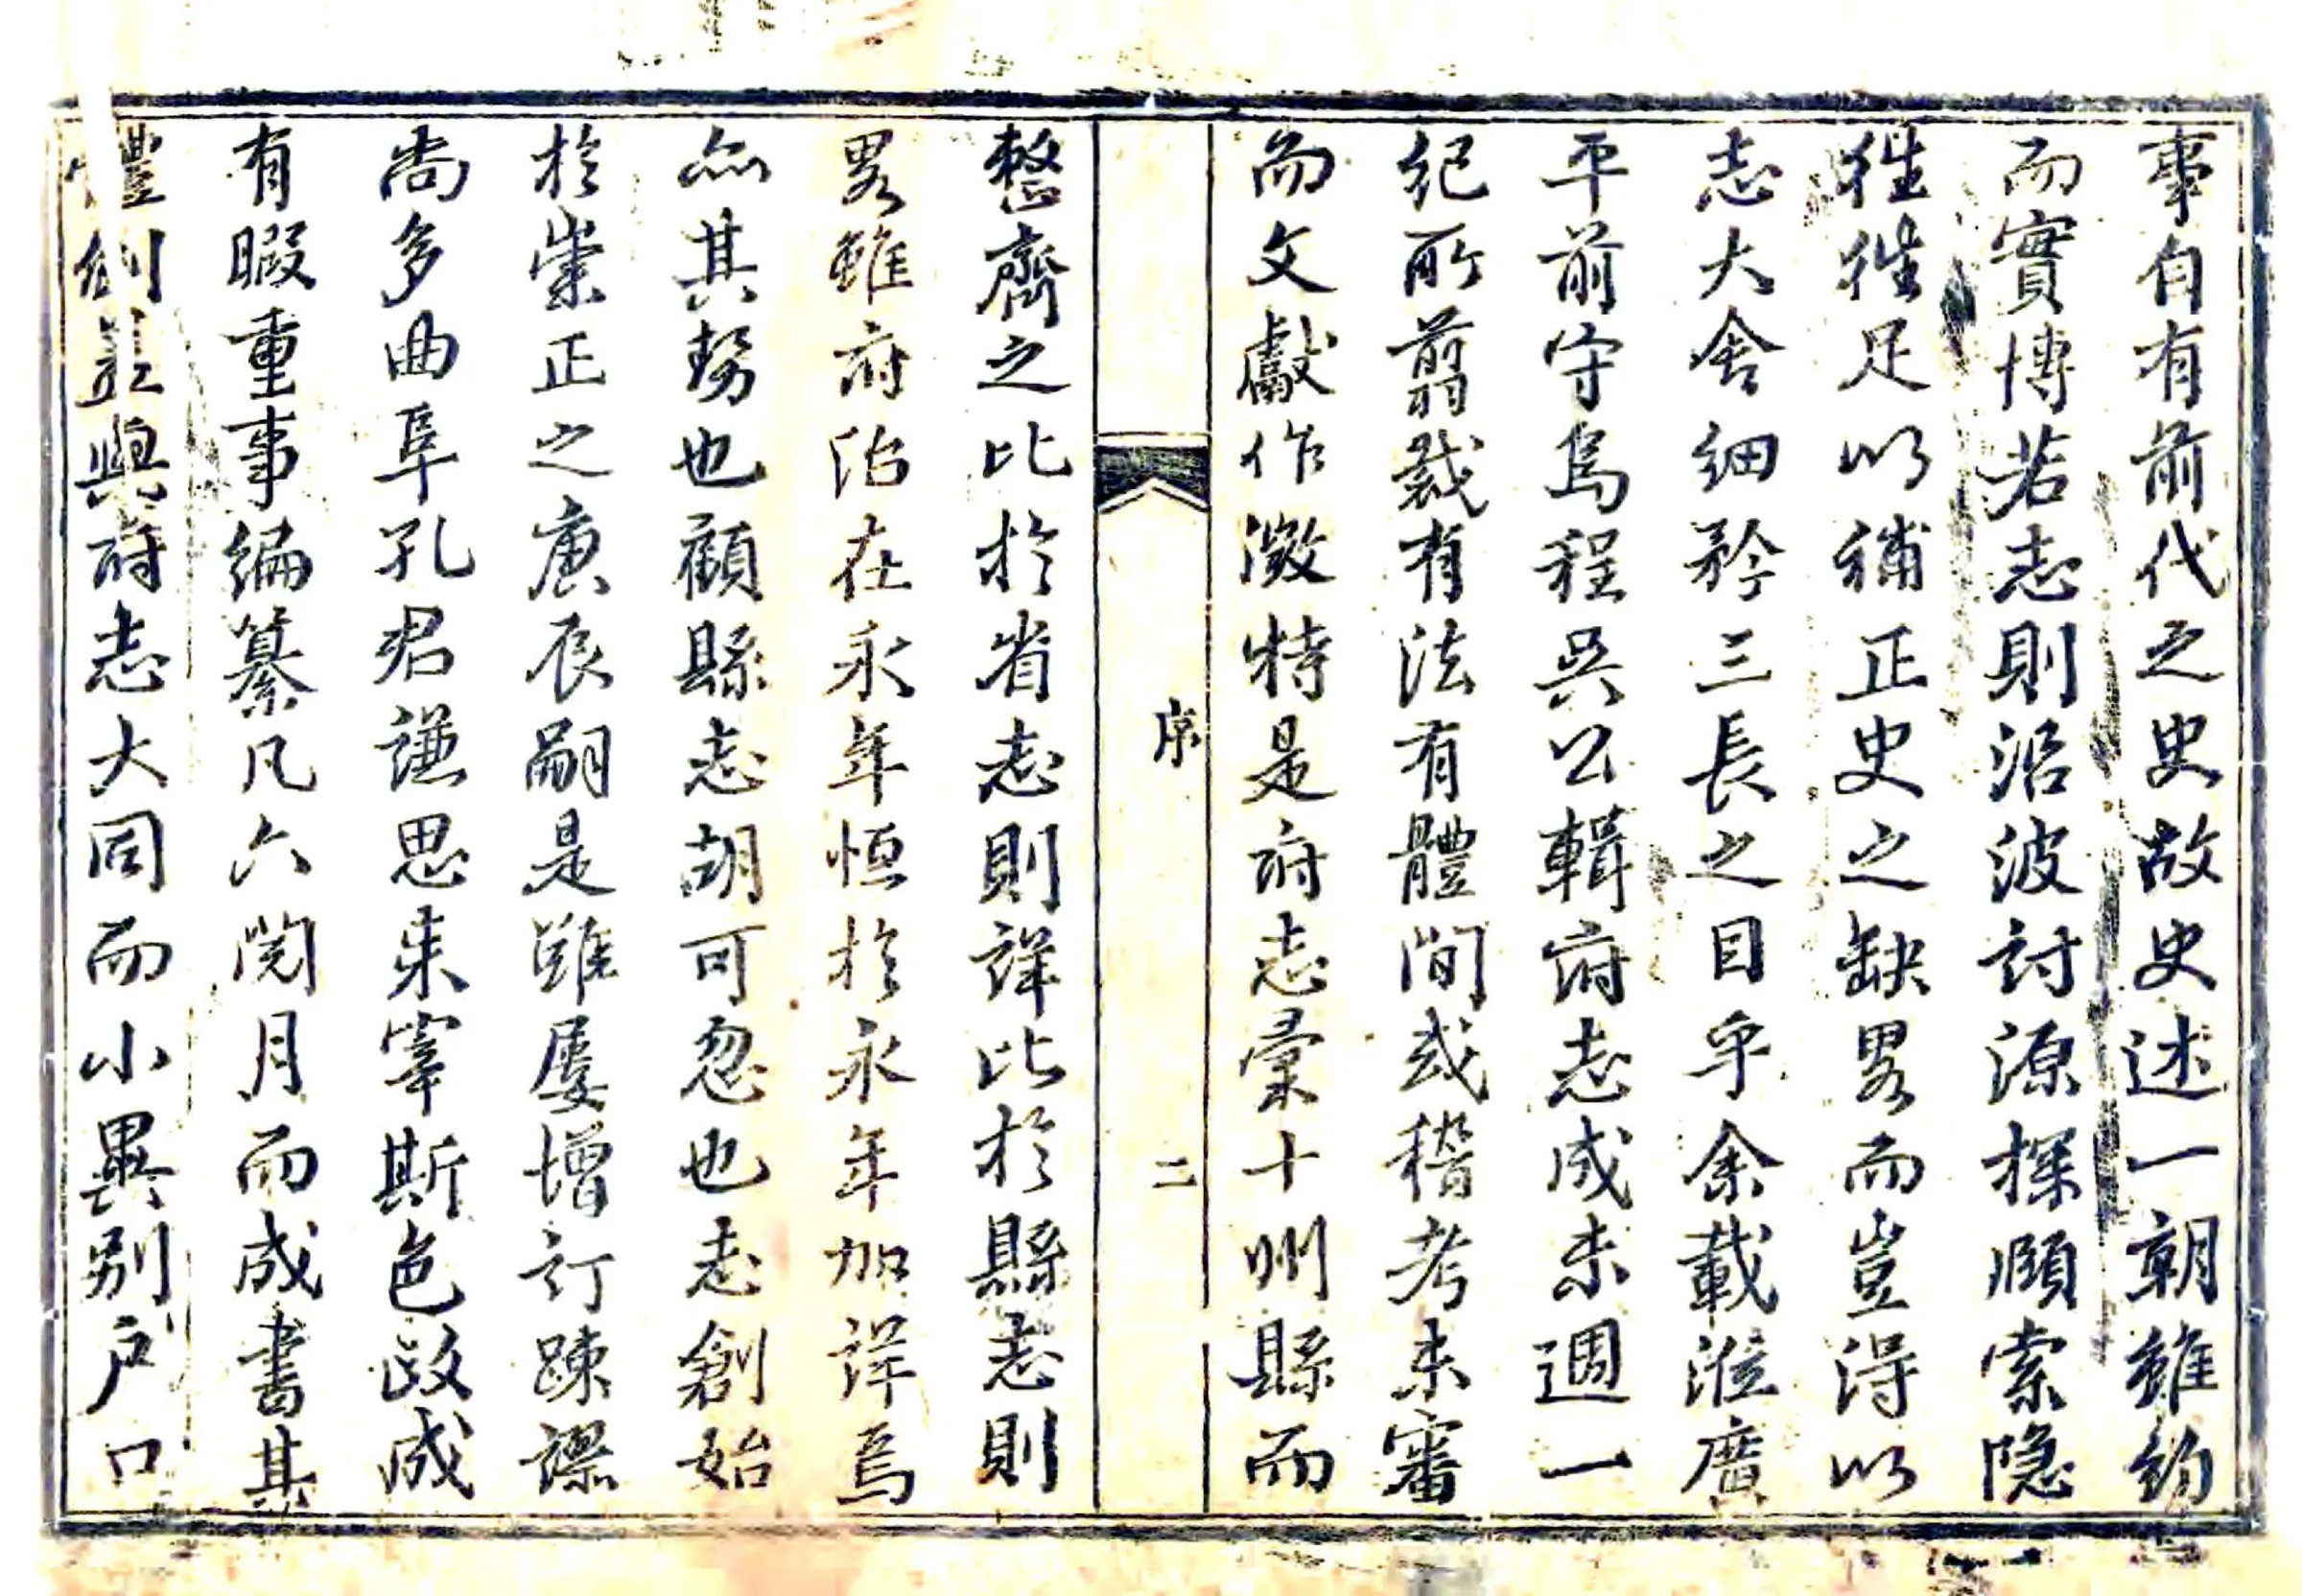 事自有前代之史故史述一朝雖約
而實博若志則沿波討源探頤索隐
徃徃足以補正史之缺畧而豈得以
志大舍細矜三長之目乎余載涖廣
平前守烏程吳公輯府志成未週一
紀所翦裁有法有體間或稽考未審
而文獻作徵特是府志彙十州縣而
序
二
整齊之比於省志則詳比於縣志則
畧雖府治在永年恒於永年加詳焉
亦其勢也顧縣志胡可忽也志創始
於崇正之庚辰嗣是雖屡增訂踈謬
尚多曲阜孔君謙思來宰斯邑政成
有暇重事編纂凡六閱月而成書其
體例並與府志大同而小異别户口